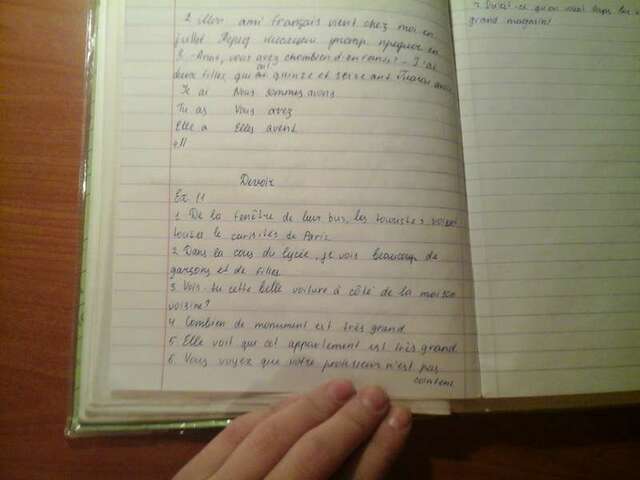 2. Mon ami français vient chez moi en
juillet
3. - Anne, vous avez chombien d'enfants? - J'ai
deux filles, qui ont quinze et seize ans
Je ai Nous sommes avons
Tu as Vous avez
Elle a Elles avent
+ Il
Devoir
Ex 11
1. De la fenêtre de leur bus, les touristes
toutes le curisités de Paris.
2. Dans la cour du lycée, je vois beaucoup de
garçons et de filles
3. Vois-tu cette belle voiture à côté de la maison
voisine?
4. Combien de monument est très grand
5. Elle voit que cet appartement est très grand
6. Vous voyez que votre professeur n'est pas
content
qu'on
grand magasin?